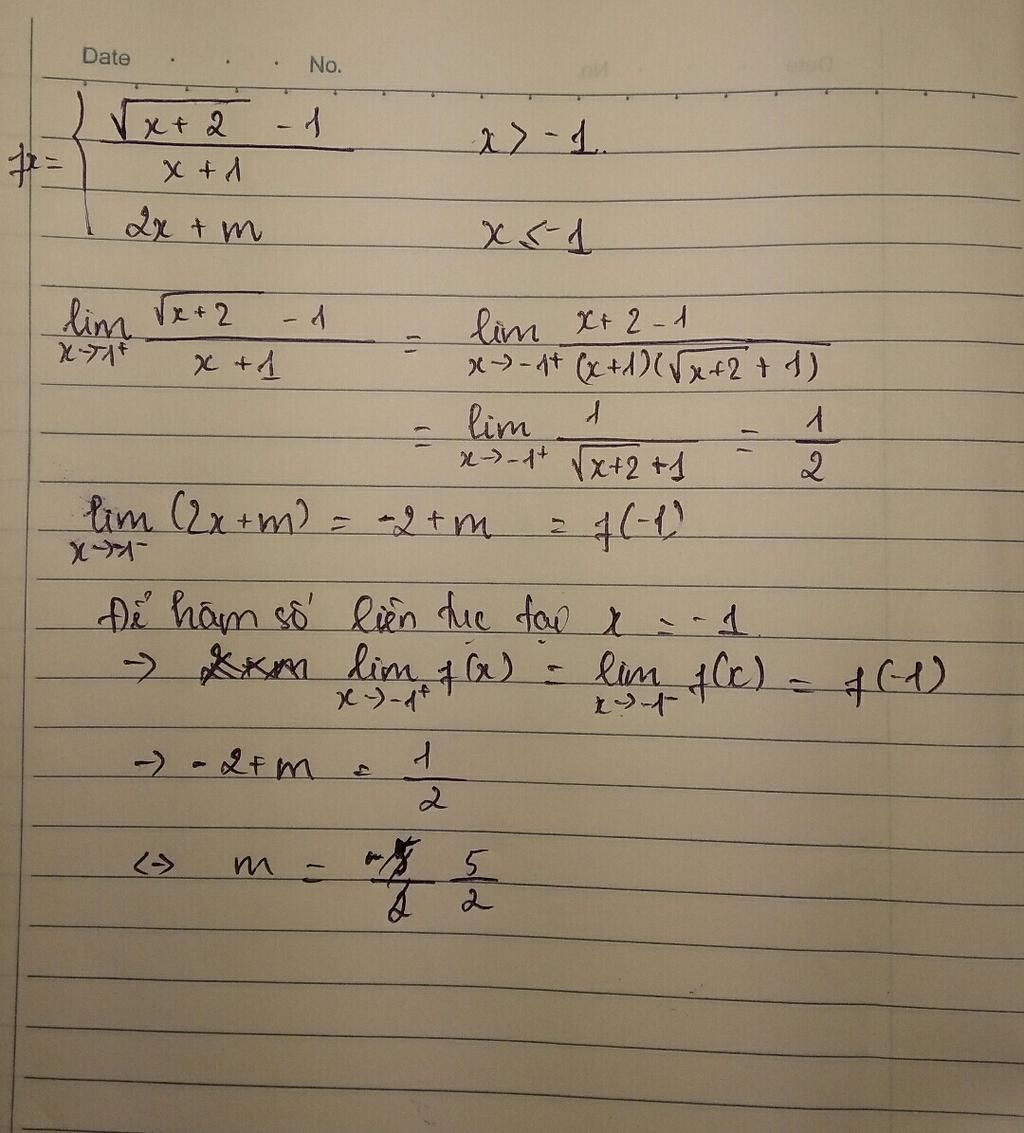 Date . . . No.
fx = { (√(x+2) - 1)/(x+1)    x > -1.
2x + m    x ≤ -1
lim x→-1⁺ (√(x+2) - 1)/(x+1) = lim x→-1⁺ (x+2-1)/((x+1)(√(x+2) + 1))
= lim x→-1⁺ 1/(√(x+2) + 1) = 1/2
lim x→-1⁻ (2x+m) = -2+m = f(-1)
Để hàm số liên tục tại x = -1
→ lim x→-1⁺ f(x) = lim x→-1⁻ f(x) = f(-1)
→ -2+m = 1/2
<-> m = 5/2